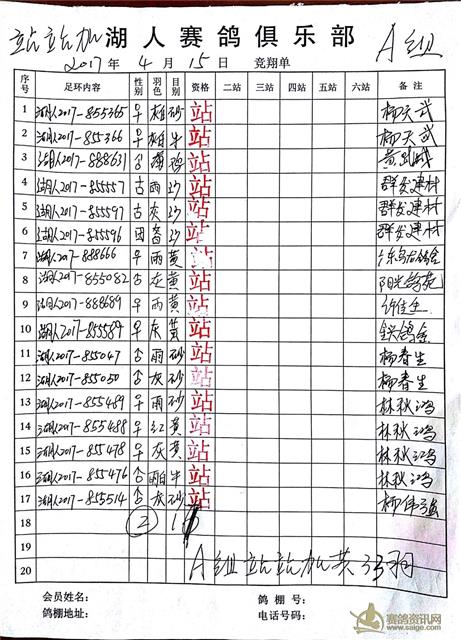 站站加 湖人赛鸽俱乐部 A组
2017年 4月 15日 竞翔单
序号 足环内容 性别 羽色 目别 资格 二站 三站 四站 五站 六站 备注
1 湖人2017-855365 早 雄 砂 站 柳天武
2 湖人2017-855366 早 雄 牛 站 柳天武
3 湖人2017-888631 站
4 湖人2017-855557 雨 沙 站 群发建材
5 湖人2017-855597 灰 沙 站 群发建材
6 湖人2017-855596 沙 站 群发建材
7 湖人2017-888666 早 雨 黄 站
8 湖人2017-855082 灰 黄 站 阳光鸽苑
9 湖人2017-888689 早 雨 黄 站 许佳生
10 湖人2017-855589 早 灰 黄 站
11 湖人2017-855047 雨 砂 站 柳春生
12 湖人2017-855050 灰 砂 站 柳春生
13 湖人2017-855489 早 雨 砂 站 林秋鸿
14 湖人2017-855488 早 红 黄 站 林秋鸿
15 湖人2017-855478 早 灰 黄 站 林秋鸿
16 湖人2017-855476 牛 站 林秋鸿
17 湖人2017-855514 灰 砂 站 柳伟强
18 2
19
20 A组站站加共33羽
会员姓名: 鸽棚号:
鸽棚地址: 电话号码:
赛鸽资讯网
www.saige.com